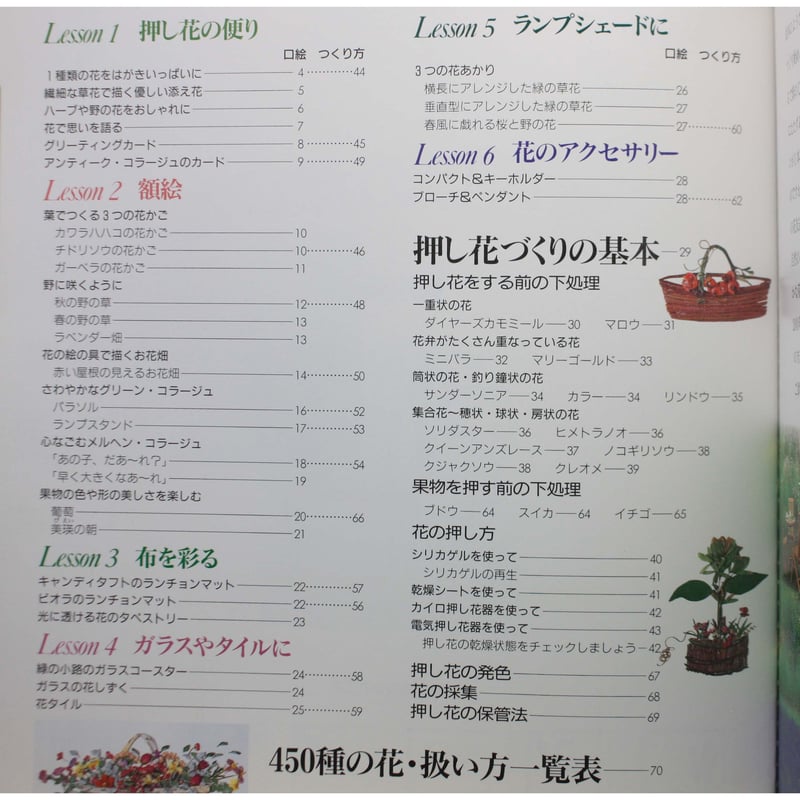 Lesson 1 押し花の便り
口絵 つくり方
1種類の花をはがきいっぱいに 4 44
繊細な草花で描く優しい添え花 5
ハーブや野の花をおしゃれに 6
花で思いを語る 7
グリーティングカード 8 45
アンティーク・コラージュのカード 9 49
Lesson 2 額絵
葉でつくる3つの花かご
カワラハハコの花かご 10
チドリソウの花かご 10 46
ガーベラの花かご 11
野に咲くように
秋の野の草 12 48
春の野の草 13
ラベンダー畑 13
花の絵の具で描くお花畑
赤い屋根の見えるお花畑 14 50
さわやかなグリーン・コラージュ
パラソル 16 52
ランプスタンド 17 53
心なごむメルヘン・コラージュ
「あの子、だあ〜れ?」 18 54
「早く大きくなあ〜れ」 19
果物の色や形の美しさを楽しむ
葡萄 20 66
美瑛の朝 21
Lesson 3 布を彩る
キャンディタフトのランチョンマット 22 57
ビオラのランチョンマット 22 56
光に透ける花のタペストリー 23
Lesson 4 ガラスやタイルに
緑の小路のガラスコースター 24 58
ガラスの花しずく 24
花タイル 25 59
Lesson 5 ランプシェードに
口絵 つくり方
3つの花あかり
横長にアレンジした緑の草花 26
垂直型にアレンジした緑の草花 27
春風に戯れる桜と野の花 27 60
Lesson 6 花のアクセサリー
コンパクト&キーホルダー 28
ブローチ&ペンダント 28 62
押し花づくりの基本 29
押し花をする前の下処理
一重状の花
ダイヤーズカモミール 30 マロウ 31
花弁がたくさん重なっている花
ミニバラ 32 マリーゴールド 33
筒状の花・釣り鐘状の花
サンダーソニア 34 カラー 34 リンドウ 35
集合花〜穂状・球状・房状の花
ソリダスター 36 ヒメトラノオ 36
クイーンアンズレース 37 ノコギリソウ 38
クジャクソウ 38 クレオメ 39
果物を押す前の下処理
ブドウ 64 スイカ 64 イチゴ 65
花の押し方
シリカゲルを使って 40
シリカゲルの再生 41
乾燥シートを使って 41
カイロ押し花器を使って 42
電気押し花器を使って 43
押し花の乾燥状態をチェックしましょう 42
押し花の発色 67
花の採集 68
押し花の保管法 69
450種の花・扱い方一覧表 70